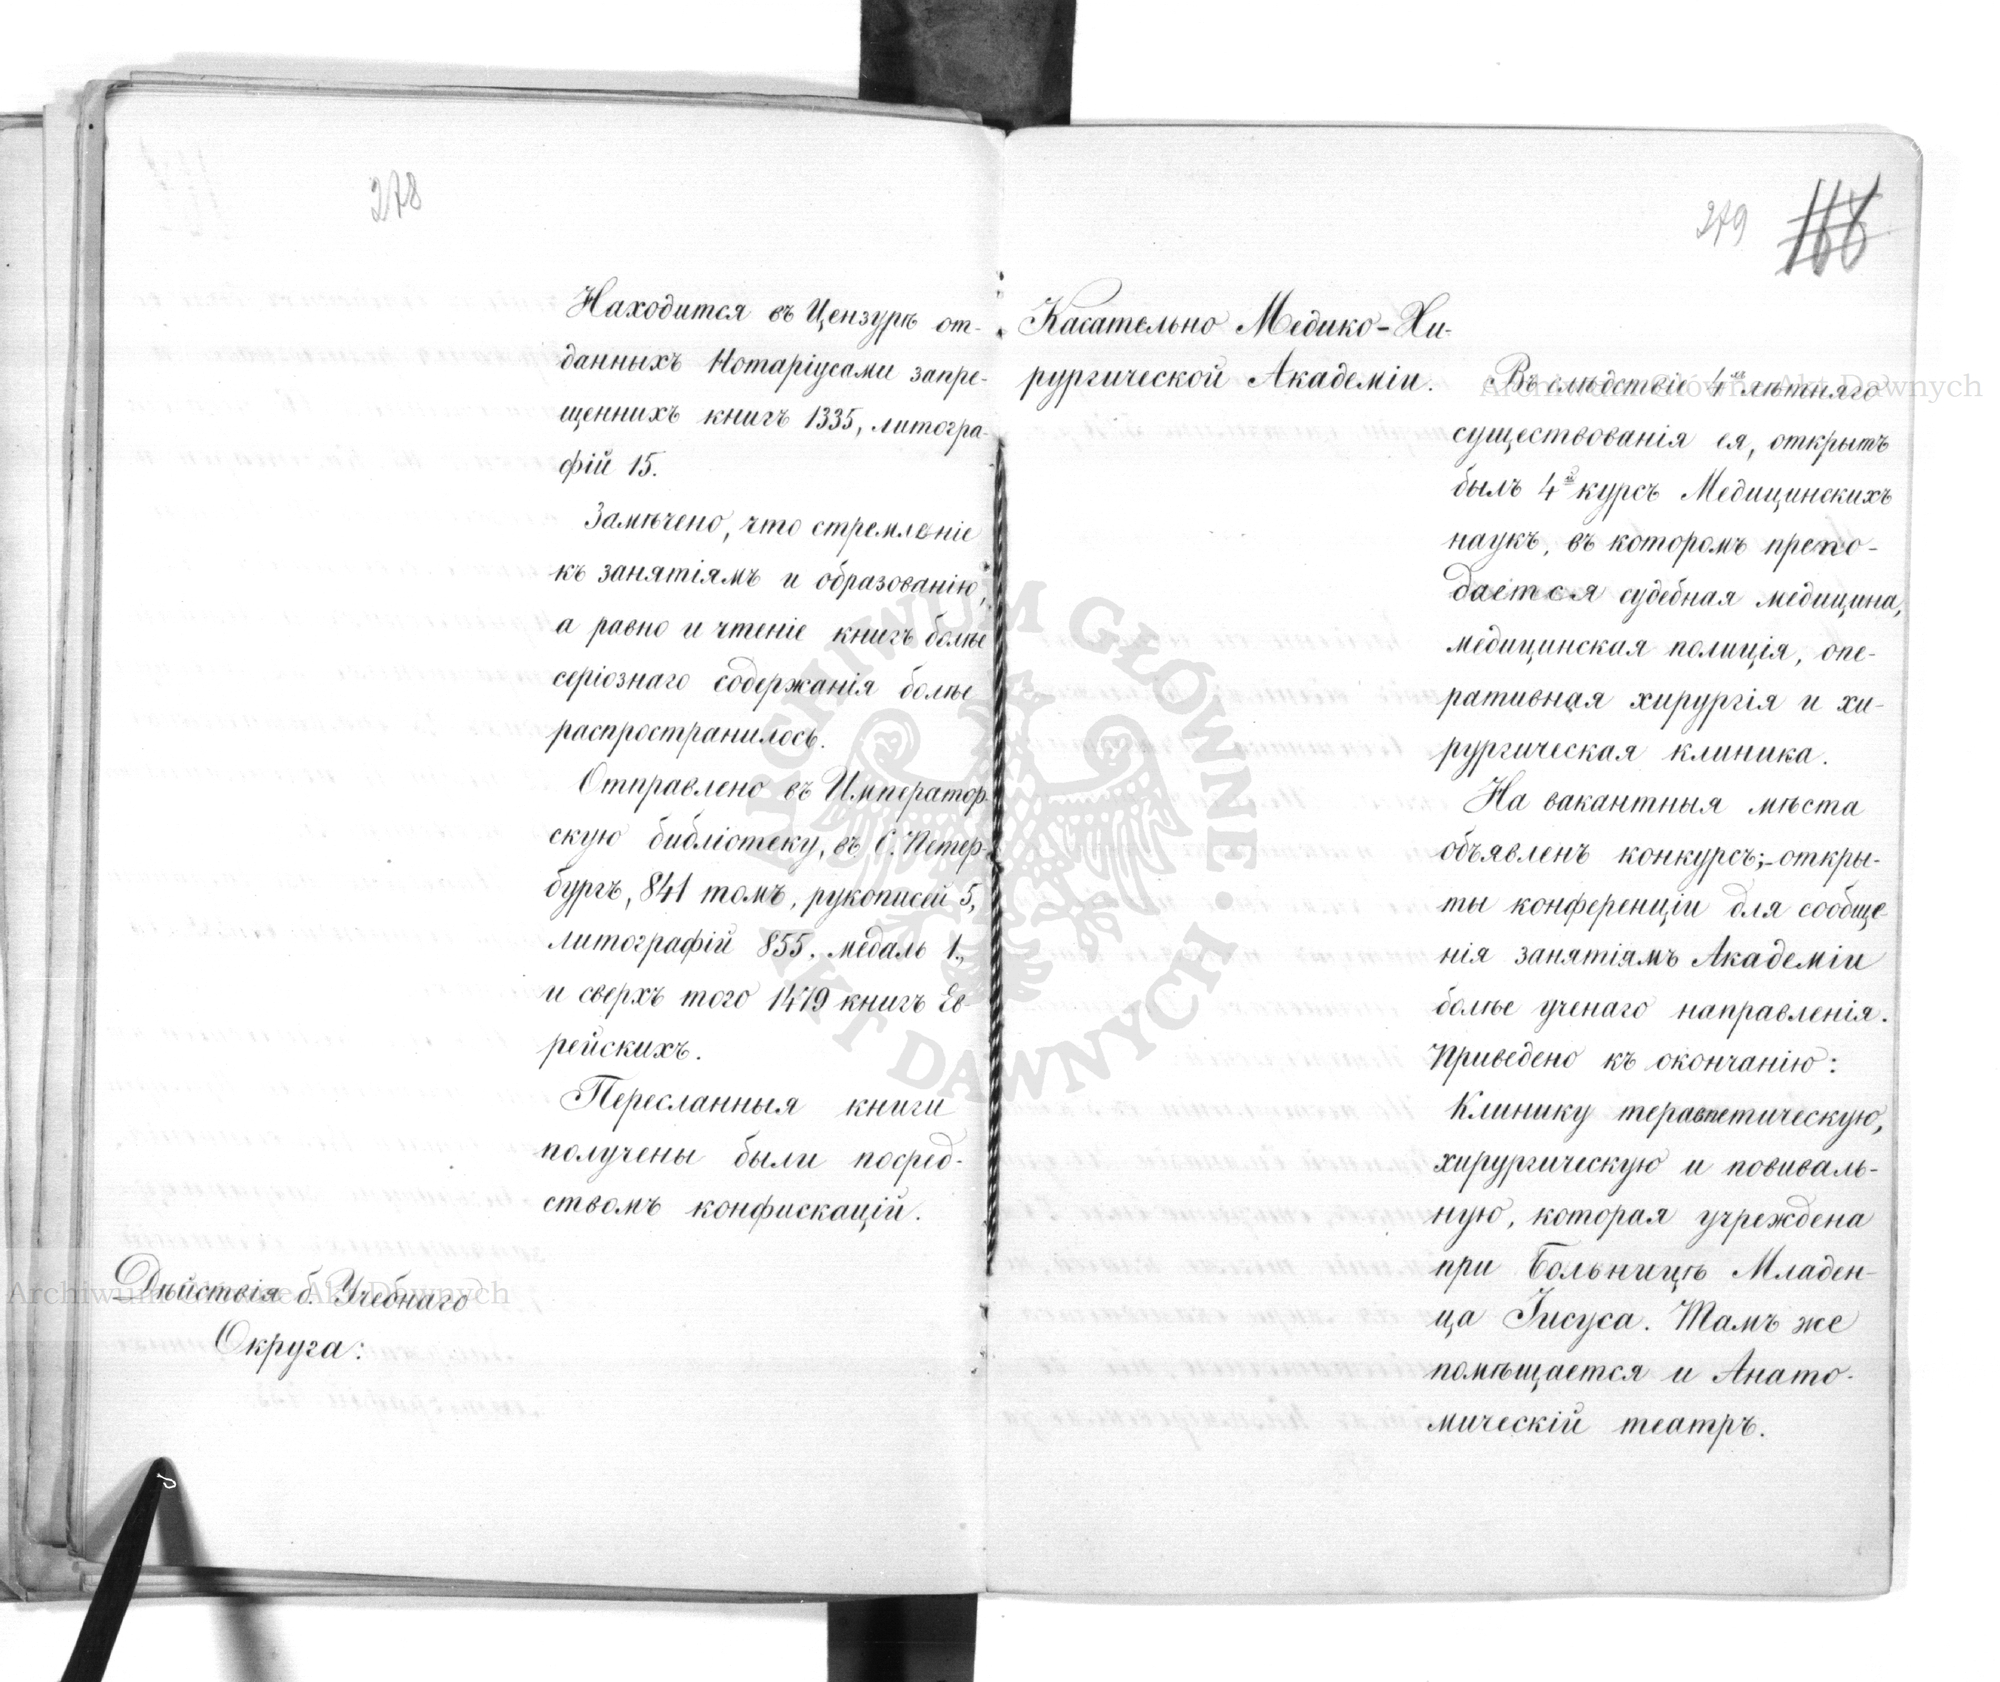 278
Находится въ Цензурѣ от-
данныхъ Нотаріусами запре-
щеннихъ книгъ 1335, литогра-
фій 15.
Замѣчено, что стремленіе
къ занятіямъ и образованію,
а равно и чтеніе книгъ болѣе
серіознаго содержанія болѣе
распространилось.
Отправлено въ Император-
скую библіотеку, въ С. Петер-
бургъ, 841 томъ, рукописей 5,
литографій 855, медаль 1,
и сверхъ того 1479 книгъ Ев-
рейскихъ.
Пересланныя книги
получены были посред-
ствомъ конфискацій.
Дѣйствія б. Учебнаго
Округа:
279 166
Касательно Медико-Хи-
рургической Академіи.
Въ слѣдствіе 4хъ лѣтняго
существованія ея, открытъ
былъ 4й курсъ Медицинскихъ
наукъ, въ которомъ препо-
дается судебная медицина,
медицинская полиція, опе-
ративная хирургія и хи-
рургическая клиника.
На вакантныя мѣста
объявленъ конкурсъ; откры-
ты конференціи для сообще-
нія занятіямъ Академіи
болѣе ученаго направленія.
Приведено къ окончанію:
Клинику терапетическую,
хирургическую и повиваль-
ную, которая учреждена
при Больницѣ Младен-
ца Іисуса. Тамъ же
помѣщается и Анато-
мическій театръ.
ARCHIWUM GŁÓWNE AKT DAWNYCH
Archiwum Główne Akt Dawnych
Archiwum Główne Akt Dawnych